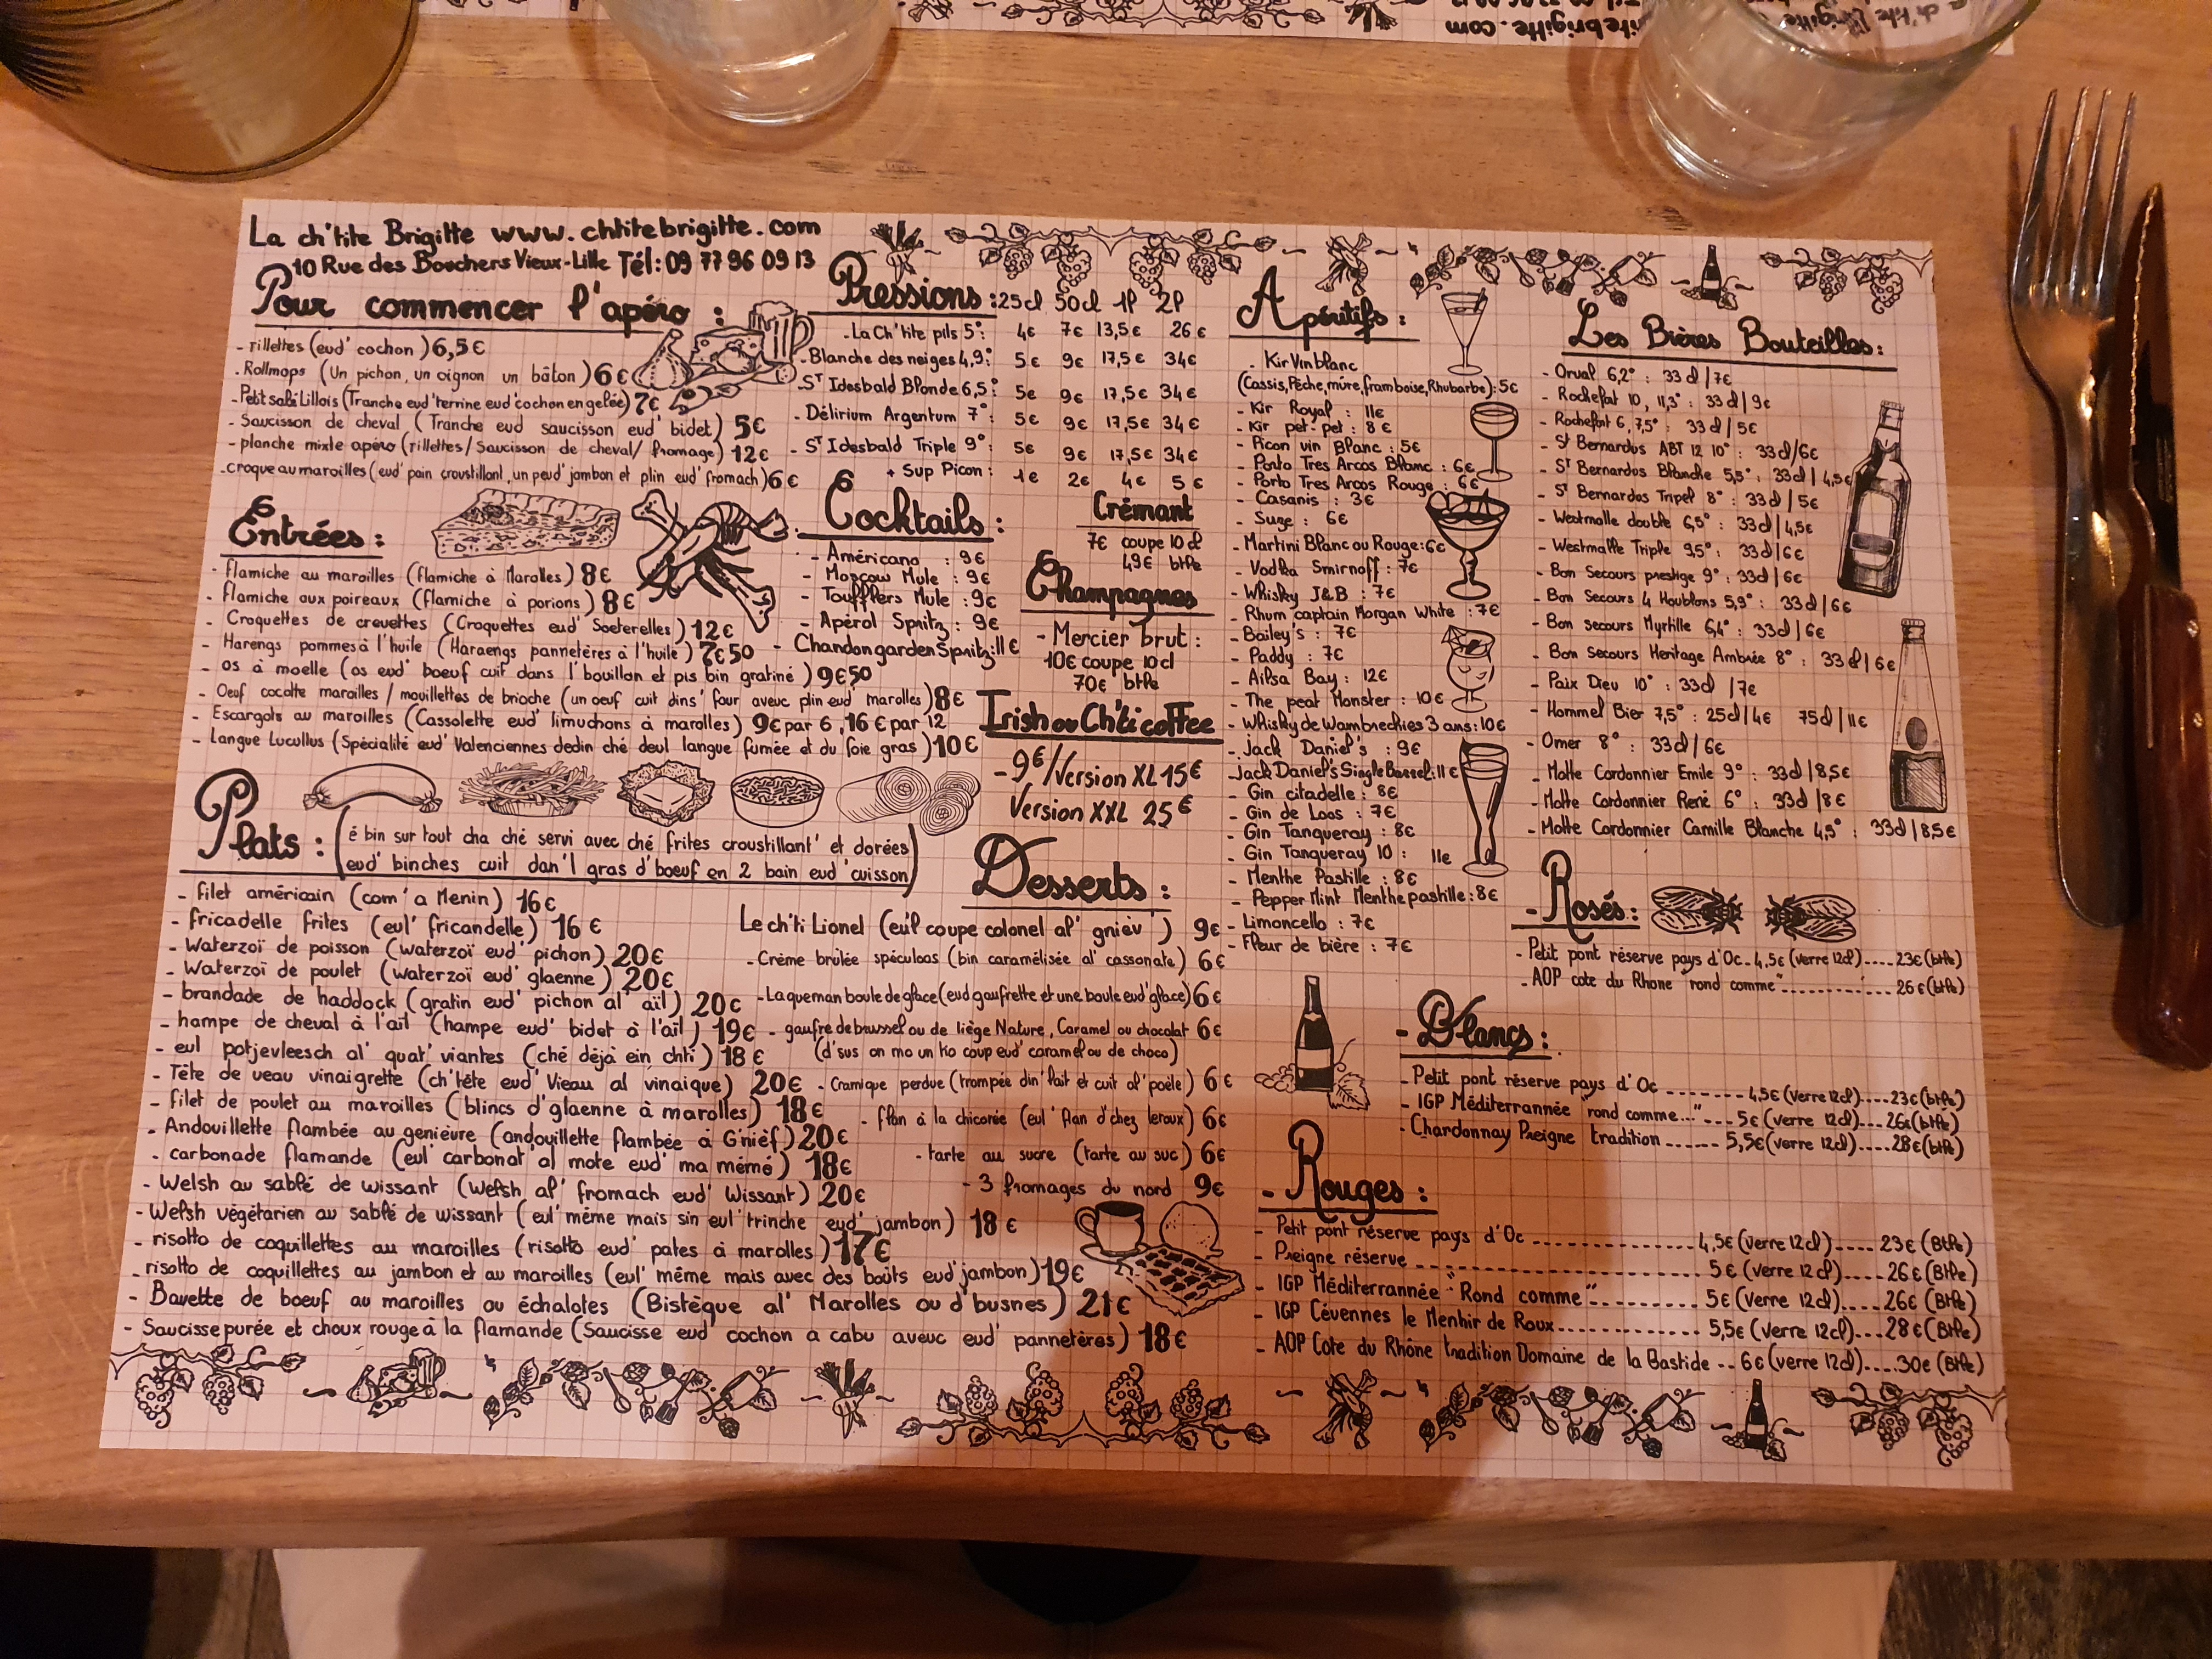 La ch'tite Brigitte www.chtitebrigitte.com
10 Rue des Bouchers Vieux-Lille Tél: 09 77 96 09 13
Pour commencer l'apéro :
- rillettes (eud' cochon) 6,5€
- Rollmops (Un pichon, un oignon un bâton) 6€
- Petit salé Lillois (Tranche eud' terrine eud' cochon en gelée) 7€
- Saucisson de cheval (Tranche eud saucisson eud' bidet) 5€
- planche mixte apéro (rillettes/Saucisson de cheval/fromage) 12€
- croque au maroilles (eud' pain croustillant, un peud' jambon et plin eud' fromach) 6€
Entrées :
- flamiche au maroilles (flamiche à Marolles) 8€
- flamiche aux poireaux (flamiche à porions) 8€
- Croquettes de crevettes (Croquettes eud' Soeterelles) 12€
- Harengs pommes à l'huile (Haraengs pannetères à l'huile) 7€50
- os à moelle (os eud' boeuf cuit dans l'bouillon et pis bin gratiné) 9€50
- Oeuf cocotte maroilles / mouillettes de brioche (un oeuf cuit dins' four aveuc plin eud' marolles) 8€
- Escargots au maroilles (Cassolette eud' limuchons à marolles) 9€ par 6, 16€ par 12
- Langue Lucullus (Spécialité eud' Valenciennes dedin ché deul langue fumée et du foie gras) 10€
Plats :
(é bin sur tout cha ché servi avec ché frites croustillant' et dorées
eud' binches cuit dan'l gras d'boeuf en 2 bain eud' cuisson)
- filet américain (com' a Menin) 16€
- fricadelle frites (eul' fricandelle) 16€
- Waterzoï de poisson (waterzoï eud' pichon) 20€
- Waterzoï de poulet (waterzoï eud' glaenne) 20€
- brandade de haddock (gratin eud' pichon al' aïl) 20€
- hampe de cheval à l'ail (hampe eud' bidet à l'ail) 19€
- eul potjevleesch al' quat' viantes (ché déjà ein chti) 18€
- Tête de veau vinaigrette (ch'tête eud' Vieau al vinaique) 20€
- filet de poulet au maroilles (blincs d'glaenne à marolles) 18€
- Andouillette flambée au genièvre (andouillette flambée à G'nièf) 20€
- carbonade flamande (eul' carbonat' al mote eud' ma mémé) 18€
- Welsh au sablé de wissant (Welsh al' fromach eud' Wissant) 20€
- Welsh végétarien au sablé de wissant (eul' même mais sin eul' trinche eud' jambon) 18€
- risotto de coquillettes au maroilles (risotto eud' pates à marolles) 17€
- risotto de coquillettes au jambon et au maroilles (eul' même mais avec des boûts eud' jambon) 19€
- Bavette de boeuf au maroilles ou échalotes (Bistèque al' Marolles ou d'busnes) 21€
- Saucisse purée et choux rouge à la flamande (Saucisse eud' cochon a cabu aveuc eud' pannetères) 18€
Pressions : 25cl 50cl 1P 2P
- La Ch'tite pils 5° : 4€ 7€ 13,5€ 26€
- Blanche des neiges 4,9° : 5€ 9€ 17,5€ 34€
- ST Idesbald Blonde 6,5° : 5€ 9€ 17,5€ 34€
- Délirium Argentum 7° : 5€ 9€ 17,5€ 34€
- ST Idesbald Triple 9° : 5€ 9€ 17,5€ 34€
+ Sup Picon : 1€ 2€ 4€ 5€
Cocktails :
- Américano : 9€
- Moscow Mule : 9€
- Toufflers Mule : 9€
- Apérol Spritz : 9€
- Chandon garden Spritz : 11€
Crémant
7€ coupe 10cl
49€ btlle
Champagnes
- Mercier brut :
10€ coupe 10cl
70€ btlle
Irish ou Ch'ti coffee
- 9€/Version XL 15€
Version XXL 25€
Desserts :
Le ch'ti Lionel (eul' coupe colonel al' gniév') 9€
- Crème brûlée spéculoos (bin caramélisée al' cassonate) 6€
- La queman boule de glace (eud gaufrette et une boule eud' glace) 6€
- gaufre de brussel ou de liège Nature, Caramel ou chocolat 6€
(d'sus on mo un tio coup eud' caramel ou de choco)
- Cramique perdue (trompée din' lait et cuit al' poêle) 6€
- flan à la chicorée (eul' flan d'chez leroux) 6€
- tarte au sucre (tarte au suc) 6€
- 3 fromages du nord 9€
Apéritifs :
- Kir Vin blanc
(Cassis, Pêche, mûre, framboise, Rhubarbe) : 5€
- Kir Royal : 11€
- Kir pet-pet : 8€
- Picon vin Blanc : 5€
- Porto Tres Arcos Blanc : 6€
- Porto Tres Arcos Rouge : 6€
- Casanis : 3€
- Suze : 6€
- Martini Blanc ou Rouge : 6€
- Vodka Smirnoff : 7€
- Whisky J&B : 7€
- Rhum captain Morgan White : 7€
- Bailey's : 7€
- Paddy : 7€
- Ailsa Bay : 12€
- The peat Monster : 10€
- Whisky de Wambrechies 3 ans : 10€
- Jack Daniel's : 9€
- Jack Daniel's Single Barrel : 11€
- Gin citadelle : 8€
- Gin de Loos : 7€
- Gin Tanqueray : 8€
- Gin Tanqueray 10 : 11€
- Menthe Pastille : 8€
- Pepper Mint Menthe pastille : 8€
- Limoncello : 7€
- Fleur de bière : 7€
Les Bières Bouteilles :
- Orval 6,2° : 33cl/7€
- Rochefort 10, 11,3° : 33cl/9€
- Rochefort 6, 7,5° : 33cl/5€
- St Bernardus ABT 12 10° : 33cl/6€
- ST Bernardus Blanche 5,5° : 33cl/4,5€
- ST Bernardus Tripel 8° : 33cl/5€
- Westmalle double 6,5° : 33cl/4,5€
- Westmalle Triple 9,5° : 33cl/6€
- Bon Secours prestige 9° : 33cl/6€
- Bon Secours 4 Houblons 5,9° : 33cl/6€
- Bon secours Myrtille 6,4° : 33cl/6€
- Bon secours Heritage Ambrée 8° : 33cl/6€
- Paix Dieu 10° : 33cl/7€
- Hommel Bier 7,5° : 25cl/4€ 75cl/11€
- Omer 8° : 33cl/6€
- Motte Cordonnier Emile 9° : 33cl/8,5€
- Motte Cordonnier René 6° : 33cl/8€
- Motte Cordonnier Camille Blanche 4,5° : 33cl/8,5€
- Rosés :
- Petit pont réserve pays d'Oc - 4,5€ (verre 12cl) .... 23€ (btlle)
- AOP cote du Rhone "rond comme" .............. 26€ (btlle)
- Blancs :
- Petit pont réserve pays d'Oc ------- 4,5€ (verre 12cl) .... 23€ (btlle)
- IGP Méditerrannée "rond comme..." --- 5€ (verre 12cl) ... 26€ (btlle)
- Chardonnay Preigne tradition ------ 5,5€ (verre 12cl) .... 28€ (btlle)
- Rouges :
- Petit pont réserve pays d'Oc -------------- 4,5€ (verre 12cl) .... 23€ (Btlle)
- Preigne réserve ------------------------- 5€ (verre 12cl) .... 26€ (Btlle)
- IGP Méditerrannée "Rond comme" ---------- 5€ (verre 12cl) .... 26€ (Btlle)
- IGP Cévennes le Menhir de Roux ------------- 5,5€ (verre 12cl) ... 28€ (Btlle)
- AOP Cote du Rhône tradition Domaine de la Bastide -- 6€ (verre 12cl) .... 30€ (Btlle)